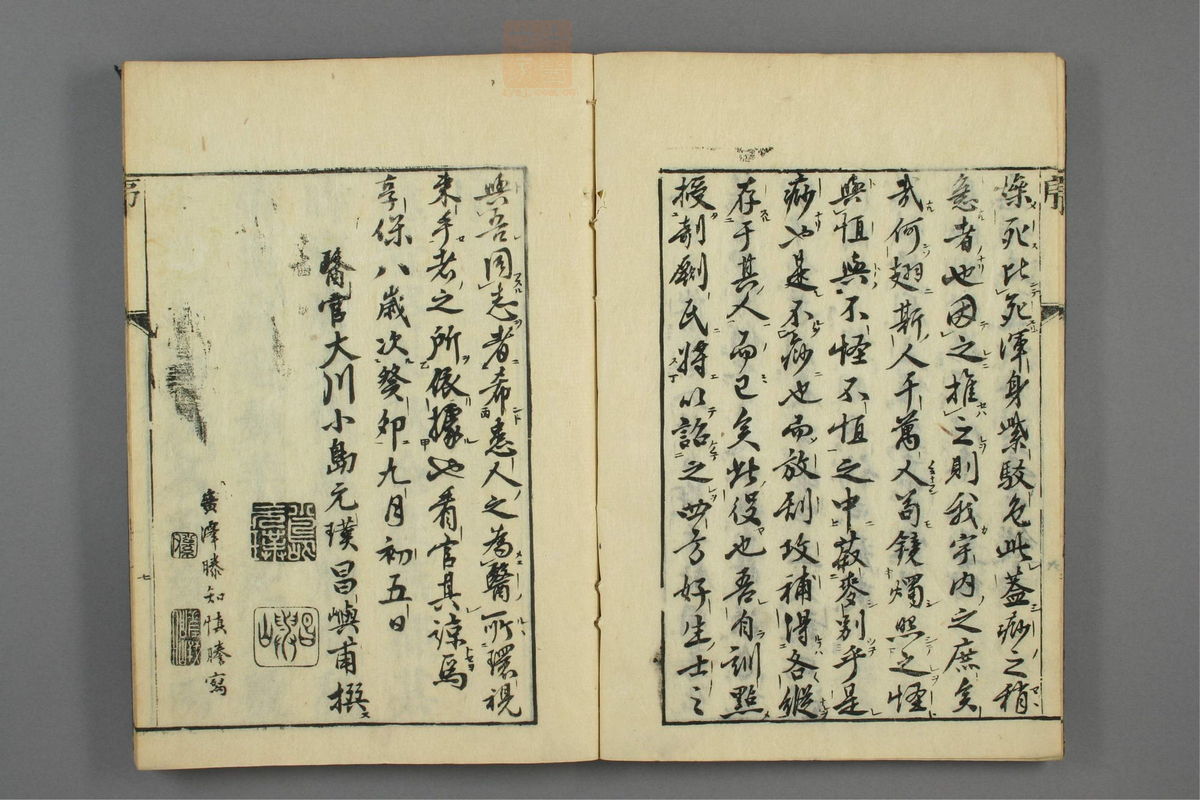 染死比死渾身紫駁色此蓋痧之稍
急者也因之推之則我宇内之庶矣
哉何翅斯人千萬人苟鏡燭照之怪
與恒與不怪不恒之中菽麥别乎是
痧也是不痧也而放刮攻補得各縱
存于其人而已矣此役也吾自訓點
授剞劂氏將以詔之四方好生士之
與吾同志者希悉人之為醫所環視
束手者之所依據也看官其諒焉
享保八歲次癸卯九月初五日
醫官大川小島元璞昌嶼甫撰
廣澤滕知慎謄寫
序
七